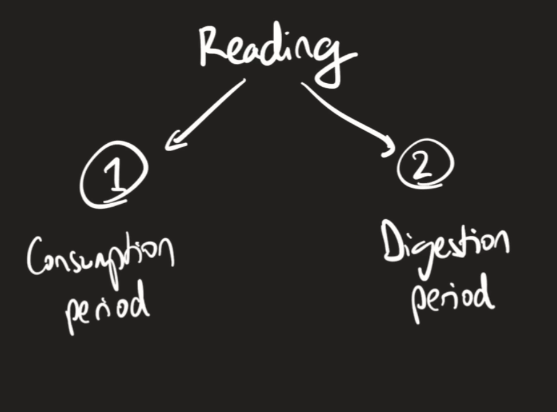 Reading
1
2
Consumption
period
Digestion
period